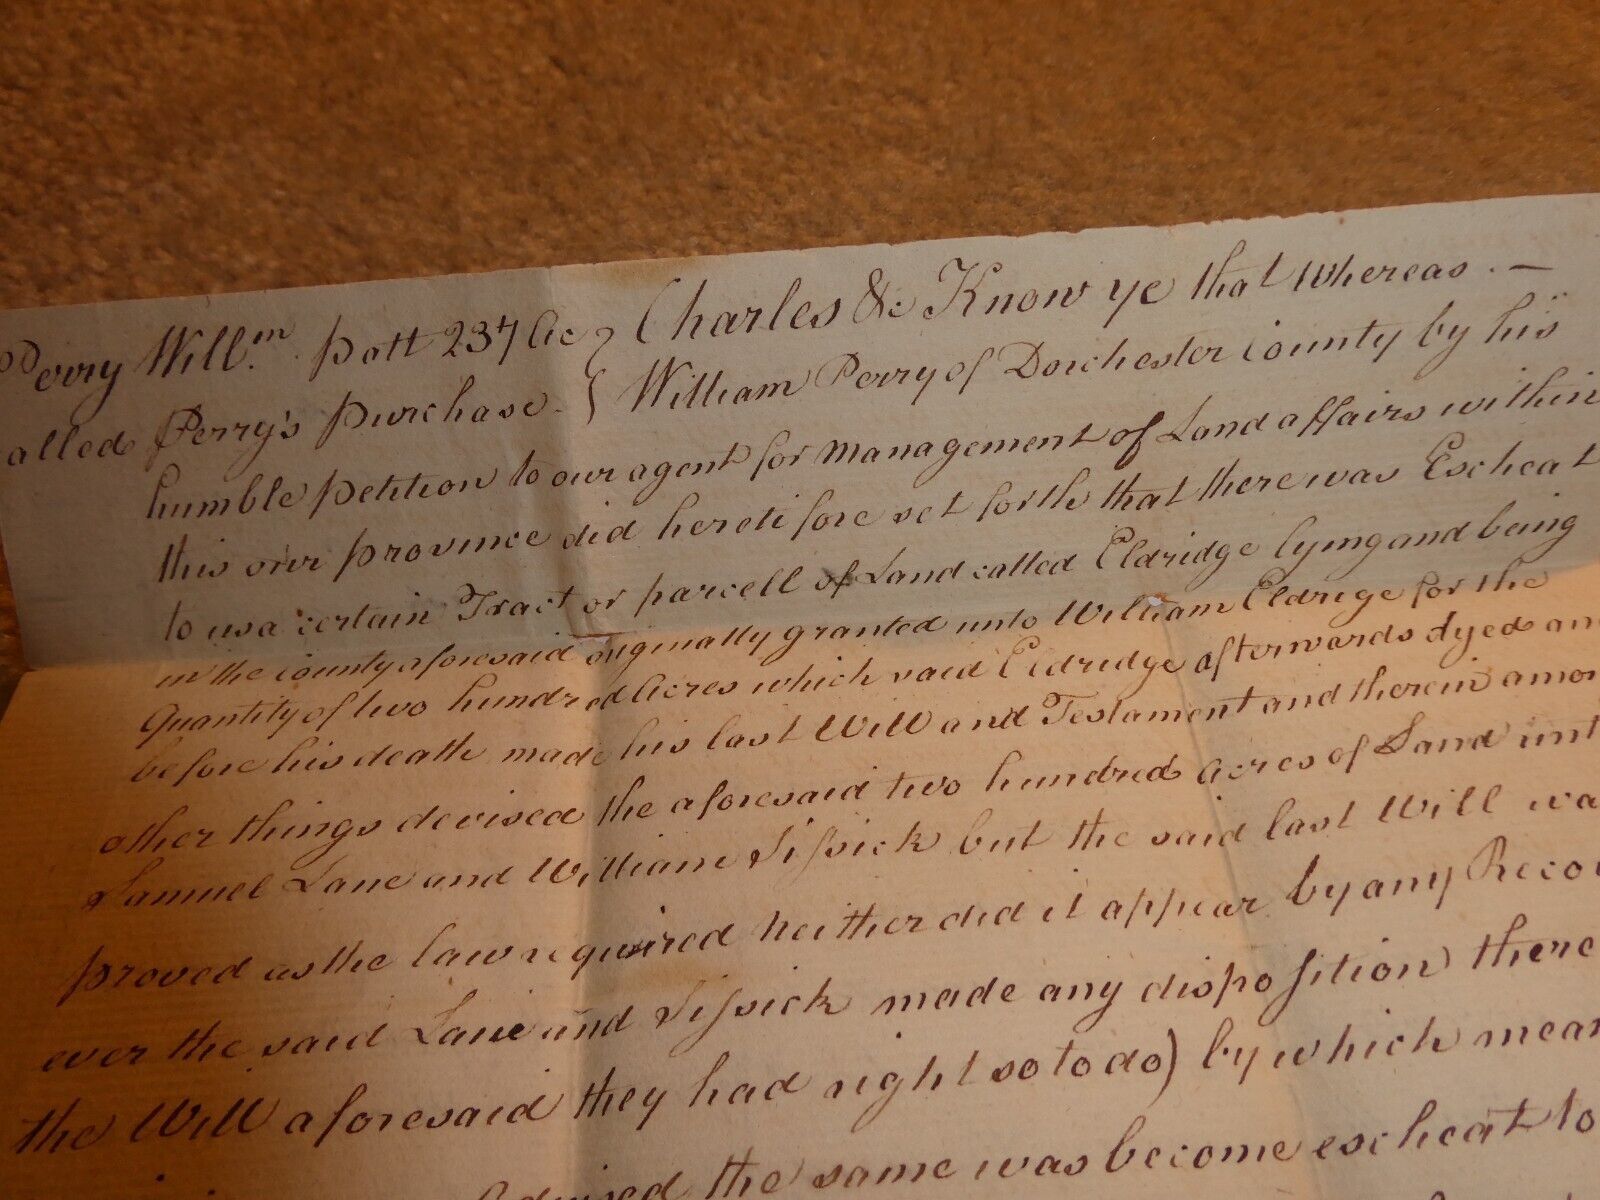 Perry Will.m Patt 237 Ac } Charles &c Know ye that whereas . —
alled Perry's Purchase. } William Perry of Dorchester County by his
humble petition to our agent for management of Land affairs within
this our province did heretifore set forth that there was Escheat
to us a certain Tract or parcell of Land called Eldridge lying and being
in the county aforesaid originally granted unto William Eldrige for the
Quantity of two hundred Acres which said Eldridge afterwards dyed an
before his death made his last Will and Testament and therein amon
other things devised the aforesaid two hundred acres of Land unt
Samuel Lane and William Sissick but the said last Will wa
proved as the law required neither did it appear by any Reco
ever the said Lane and Sissick made any disposition there
the Will aforesaid they had right so to do) by which mean
the same was become escheat to